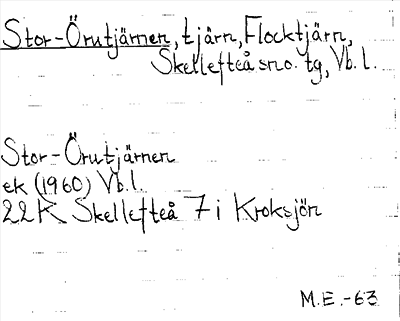 Stor-Örutjärnen, tjärn, Flocktjärn,
Skellefteå sno. tg, Vb. l.
Stor-Örutjärnen
ek (1960) Vb.l.
22K Skellefteå 7 i Kroksjön
M.E.-63